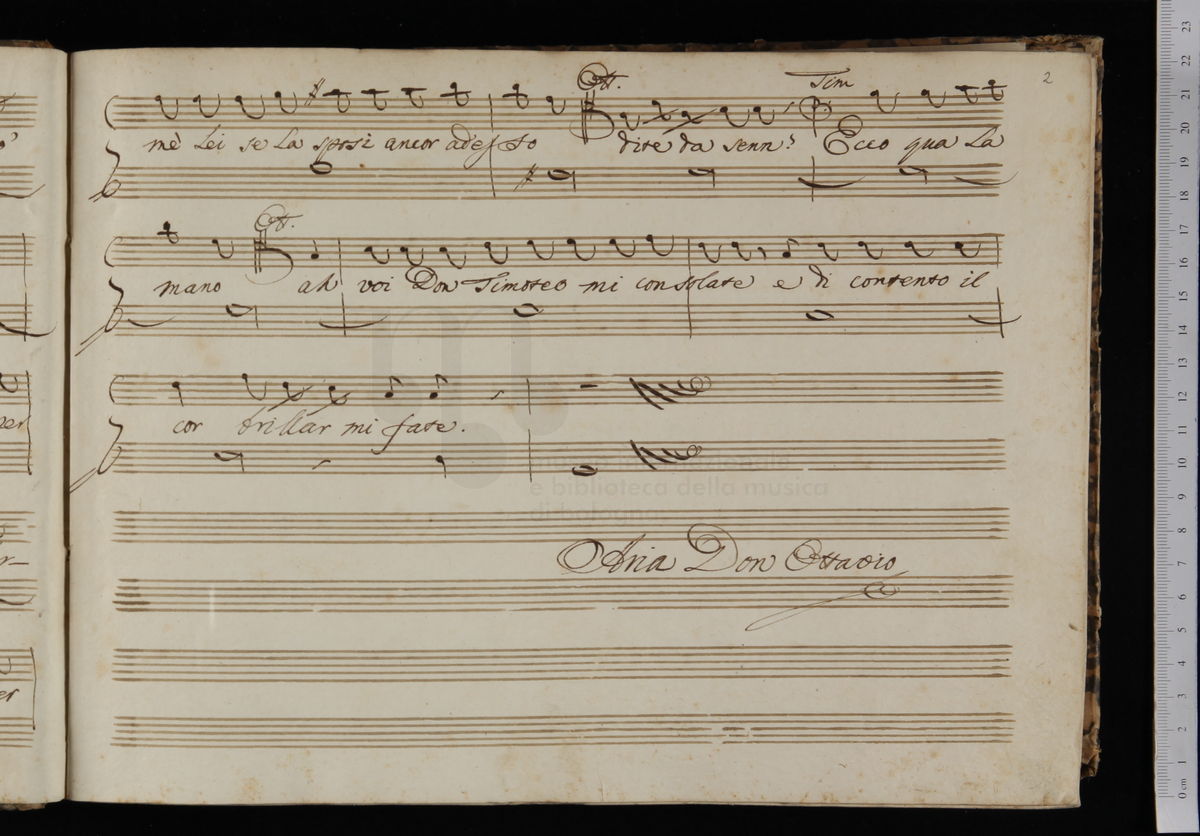 Ott. Tim 2
mè Lei se La sposi ancor adesso dite da senn? Ecco qua La
Ott.
mano ah voi Don Timoteo mi consolate e di contento il
cor brillar mi fate.
museo internazionale
e biblioteca della musica
di bologna
Aria Don Ottavio
23
22
21
20
19
18
17
16
15
14
13
12
11
10
9
8
7
6
5
4
3
2
1
0 cm